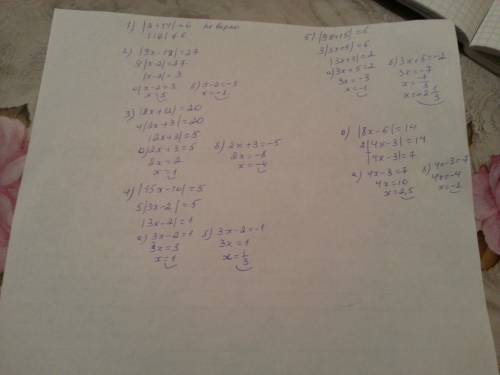 1) |3+11|=6 не верно
2) |9x-18|=27
9|x-2|=27
|x-2|=3
а) x-2=3
x=5
б) x-2=-3
x=-1
3) |8x+12|=20
4|2x+3|=20
|2x+3|=5
а) 2x+3=5
2x=2
x=1
б) 2x+3=-5
2x=-8
x=-4
4) |15x-10|=5
5|3x-2|=5
|3x-2|=1
а) 3x-2=1
3x=3
x=1
б) 3x-2=-1
3x=1
x=1/3
5) |9x+15|=6
3|3x+5|=6
|3x+5|=2
а) 3x+5=2
3x=-3
x=-1
б) 3x+5=-2
3x=-7
|8x-6|=14
2|4x-3|=14
|4x-3|=7
а) 4x-3=7
4x=10
x=2,5
б) 4x-3=-7
4x=-4
x=-1